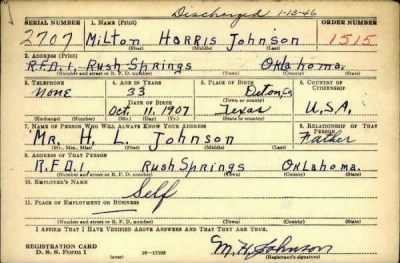 Discharged 1-13-46
SERIAL NUMBER 1. NAME (Print) ORDER NUMBER
2707 Milton Harris Johnson 1515
(First) (Middle) (Last)
2. ADDRESS (Print)
R.F.D.1, Rush Springs Oklahoma.
(Number and street or R. F. D. number) (Town) (County) (State)
3. TELEPHONE 4. AGE IN YEARS 5. PLACE OF BIRTH 6. COUNTRY OF CITIZENSHIP
None 33
DATE OF BIRTH (Town or county)
Oct. 11, 1907 Texas U.S.A.
(Exchange) (Number) (Mo.) (Day) (Yr.) (State or country)
7. NAME OF PERSON WHO WILL ALWAYS KNOW YOUR ADDRESS 8. RELATIONSHIP OF THAT PERSON
Mr. H. L. Johnson Father
(Mr., Mrs., Miss) (First) (Middle) (Last)
9. ADDRESS OF THAT PERSON
R.F.D.1 Rush Springs Oklahoma.
(Number and street or R. F. D. number) (Town) (County) (State)
10. EMPLOYER'S NAME
Self
11. PLACE OF EMPLOYMENT OR BUSINESS
(Number and street or R. F. D. number) (Town) (County) (State)
I AFFIRM THAT I HAVE VERIFIED ABOVE ANSWERS AND THAT THEY ARE TRUE.
REGISTRATION CARD
D. S. S. Form 1 M. H. Johnson
(Registrant's signature)